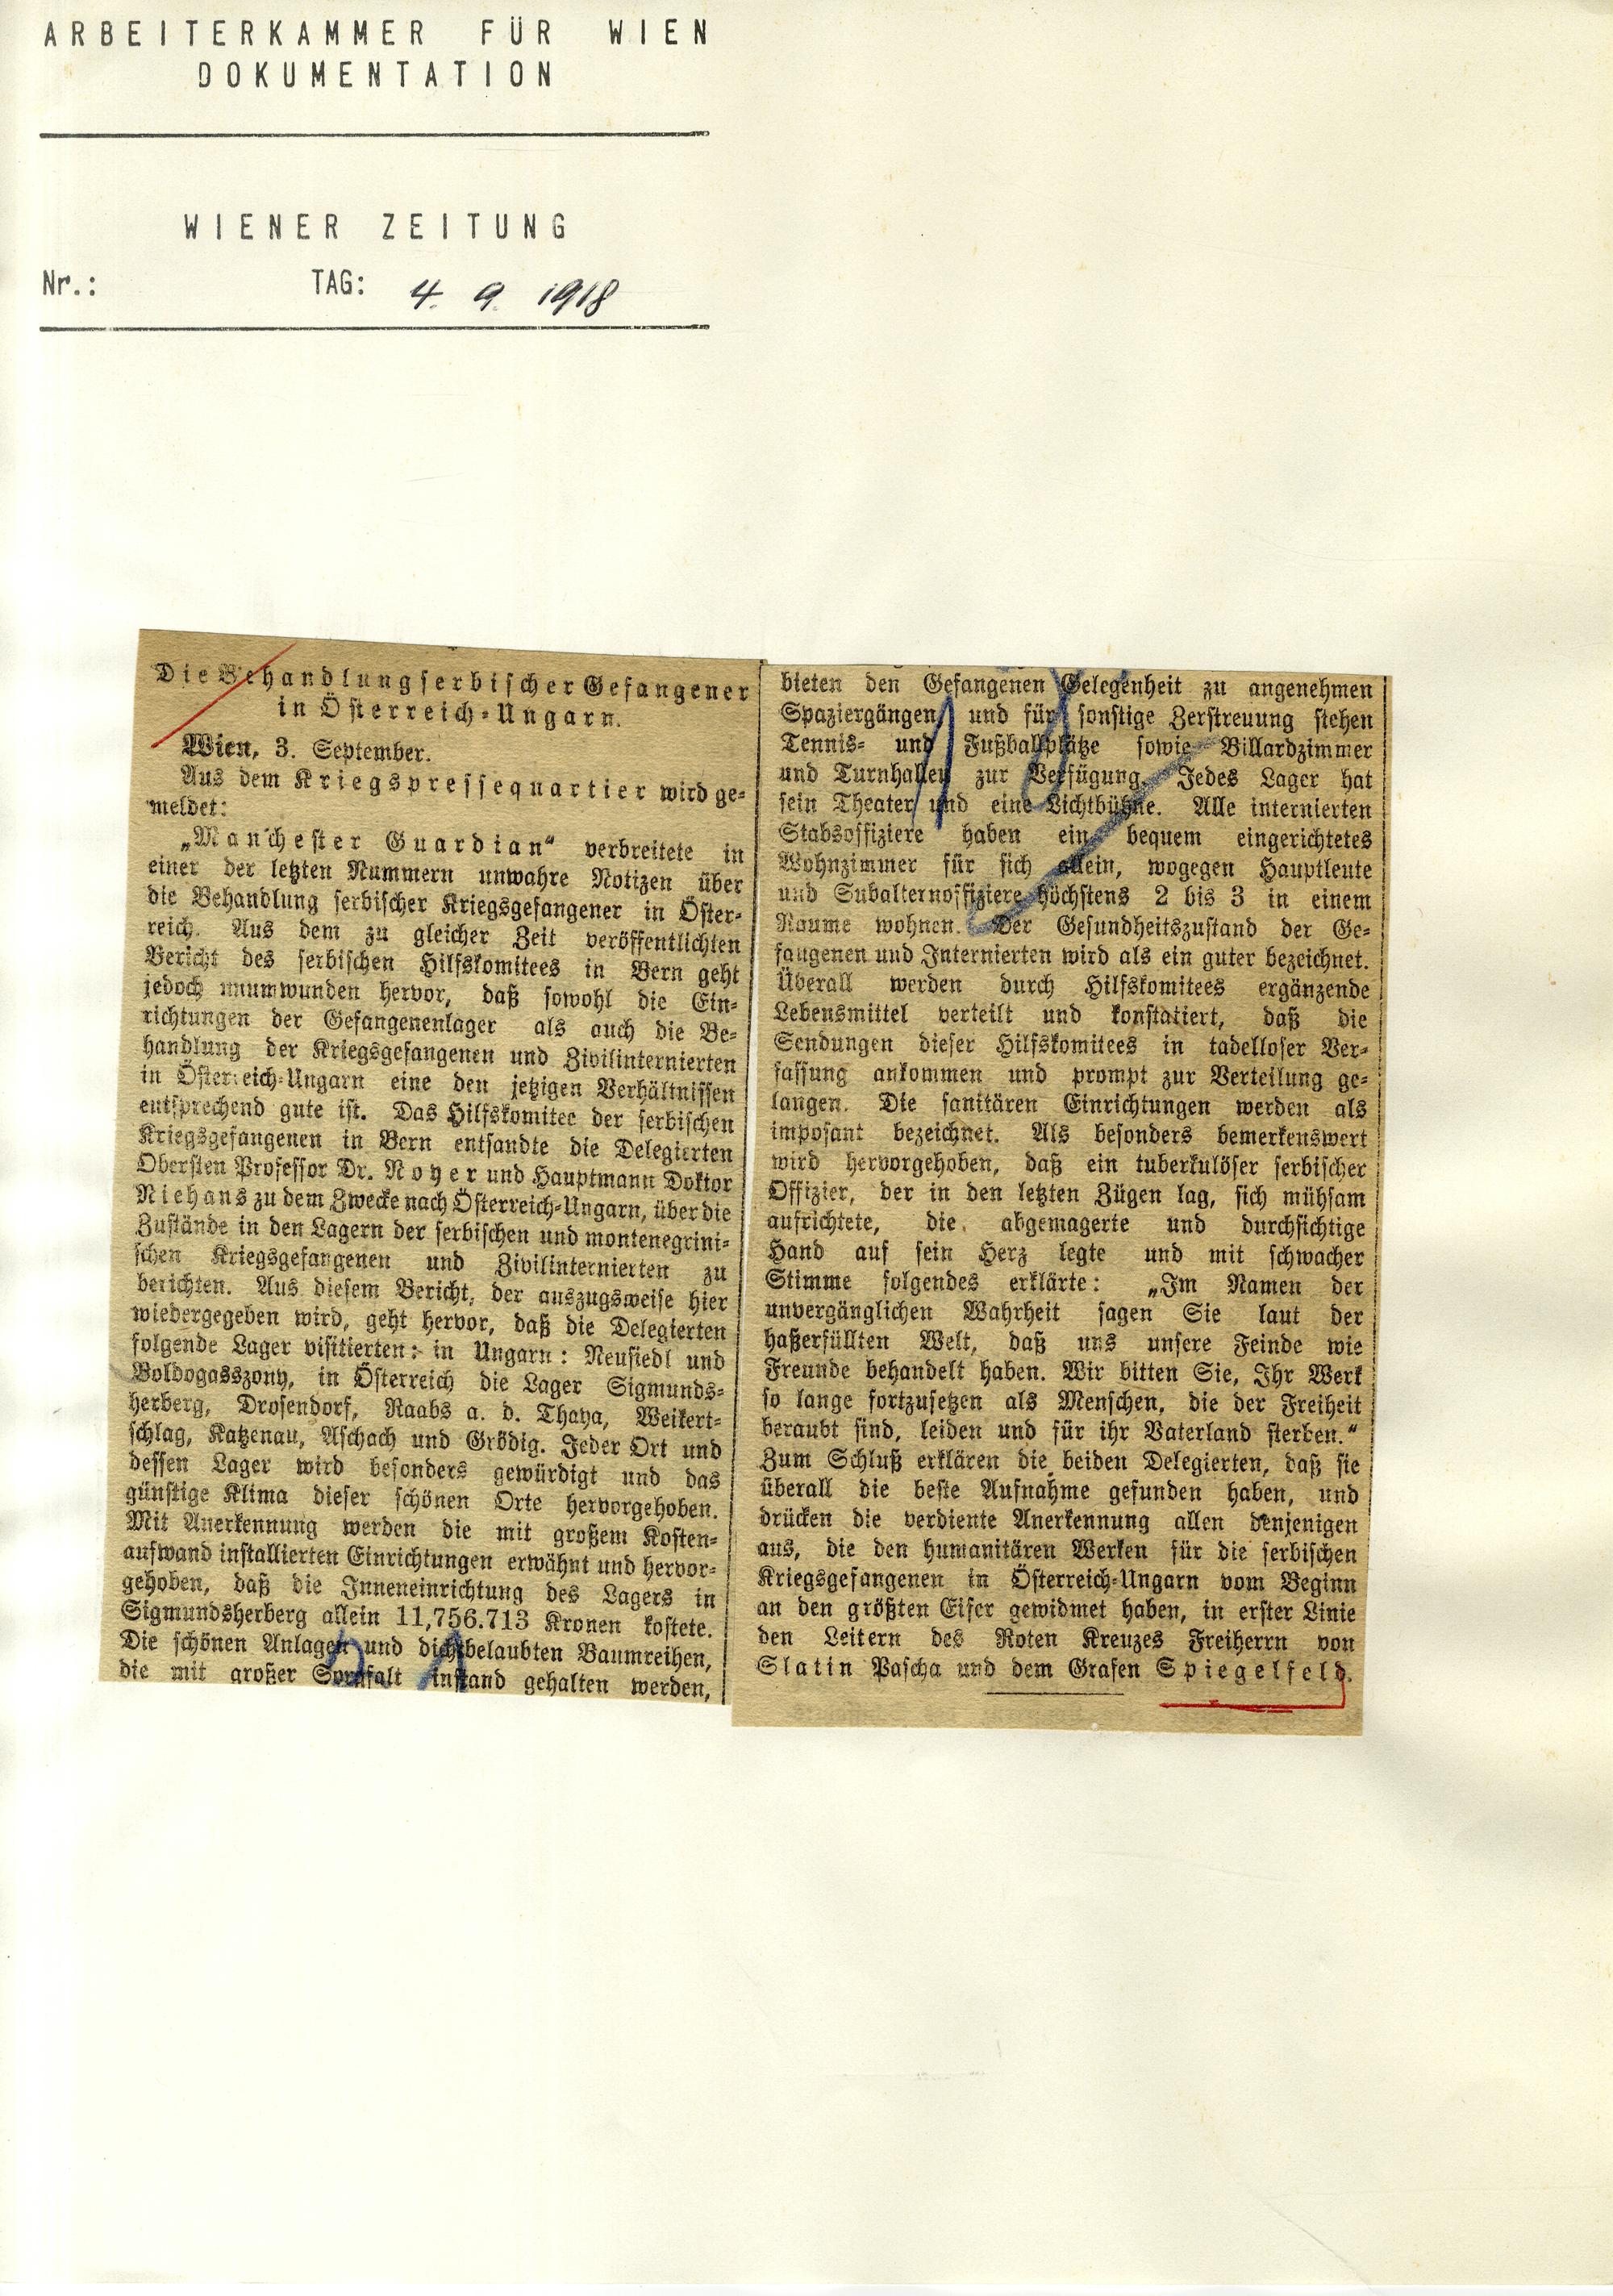 ARBEITERKAMMER FÜR WIEN
DOKUMENTATION
WIENER ZEITUNG
Nr.: TAG: 4. 9. 1918
Die Behandlung serbischer Gefangener
in Österreich-Ungarn.
Wien, 3. September.
Aus dem Kriegspressequartier wird ge-
meldet:
„Manchester Guardian“ verbreitete in
einer der letzten Nummern unwahre Notizen über
die Behandlung serbischer Kriegsgefangener in Öster-
reich. Aus dem zu gleicher Zeit veröffentlichten
Bericht des serbischen Hilfskomitees in Bern geht
jedoch unumwunden hervor, daß sowohl die Ein-
richtungen der Gefangenenlager als auch die Be-
handlung der Kriegsgefangenen und Zivilinternierten
in Österreich-Ungarn eine den jetzigen Verhältnissen
entsprechend gute ist. Das Hilfskomitee der serbischen
Kriegsgefangenen in Bern entsandte die Delegierten
Obersten Professor Dr. Noyer und Hauptmann Doktor
Niehans zu dem Zwecke nach Österreich-Ungarn, über die
Zustände in den Lagern der serbischen und montenegrini-
schen Kriegsgefangenen und Zivilinternierten zu
berichten. Aus diesem Bericht, der auszugsweise hier
wiedergegeben wird, geht hervor, daß die Delegierten
folgende Lager visitierten: in Ungarn: Neusiedl und
Boldogasszony, in Österreich die Lager Sigmunds-
herberg, Drosendorf, Raabs a. d. Thaya, Weikert-
schlag, Katzenau, Aschach und Grödig. Jeder Ort und
dessen Lager wird besonders gewürdigt und das
günstige Klima dieser schönen Orte hervorgehoben.
Mit Anerkennung werden die mit großem Kosten-
aufwand installierten Einrichtungen erwähnt und hervor-
gehoben, daß die Inneneinrichtung des Lagers in
Sigmundsherberg allein 11,756.713 Kronen kostete.
Die schönen Anlagen und dichtbelaubten Baumreihen,
die mit großer Sorgfalt instand gehalten werden,
bieten den Gefangenen Gelegenheit zu angenehmen
Spaziergängen, und für sonstige Zerstreuung stehen
Tennis- und Fußballplätze sowie Billardzimmer
und Turnhallen zur Verfügung. Jedes Lager hat
sein Theater und eine Lichtbühne. Alle internierten
Stabsoffiziere haben ein bequem eingerichtetes
Wohnzimmer für sich allein, wogegen Hauptleute
und Subalternoffiziere höchstens 2 bis 3 in einem
Raume wohnen. Der Gesundheitszustand der Ge-
fangenen und Internierten wird als ein guter bezeichnet.
Überall werden durch Hilfskomitees ergänzende
Lebensmittel verteilt und konstatiert, daß die
Sendungen dieser Hilfskomitees in tadelloser Ver-
fassung ankommen und prompt zur Verteilung ge-
langen. Die sanitären Einrichtungen werden als
imposant bezeichnet. Als besonders bemerkenswert
wird hervorgehoben, daß ein tuberkulöser serbischer
Offizier, der in den letzten Zügen lag, sich mühsam
aufrichtete, die abgemagerte und durchsichtige
Hand auf sein Herz legte und mit schwacher
Stimme folgendes erklärte: „Im Namen der
unvergänglichen Wahrheit sagen Sie laut der
haßerfüllten Welt, daß uns unsere Feinde wie
Freunde behandelt haben. Wir bitten Sie, Ihr Werk
so lange fortzusetzen als Menschen, die der Freiheit
beraubt sind, leiden und für ihr Vaterland sterben.“
Zum Schluß erklären die beiden Delegierten, daß sie
überall die beste Aufnahme gefunden haben, und
drücken die verdiente Anerkennung allen denjenigen
aus, die den humanitären Werken für die serbischen
Kriegsgefangenen in Österreich-Ungarn vom Beginn
an den größten Eifer gewidmet haben, in erster Linie
den Leitern des Roten Kreuzes Freiherrn von
Slatin Pascha und dem Grafen Spiegelfeld.